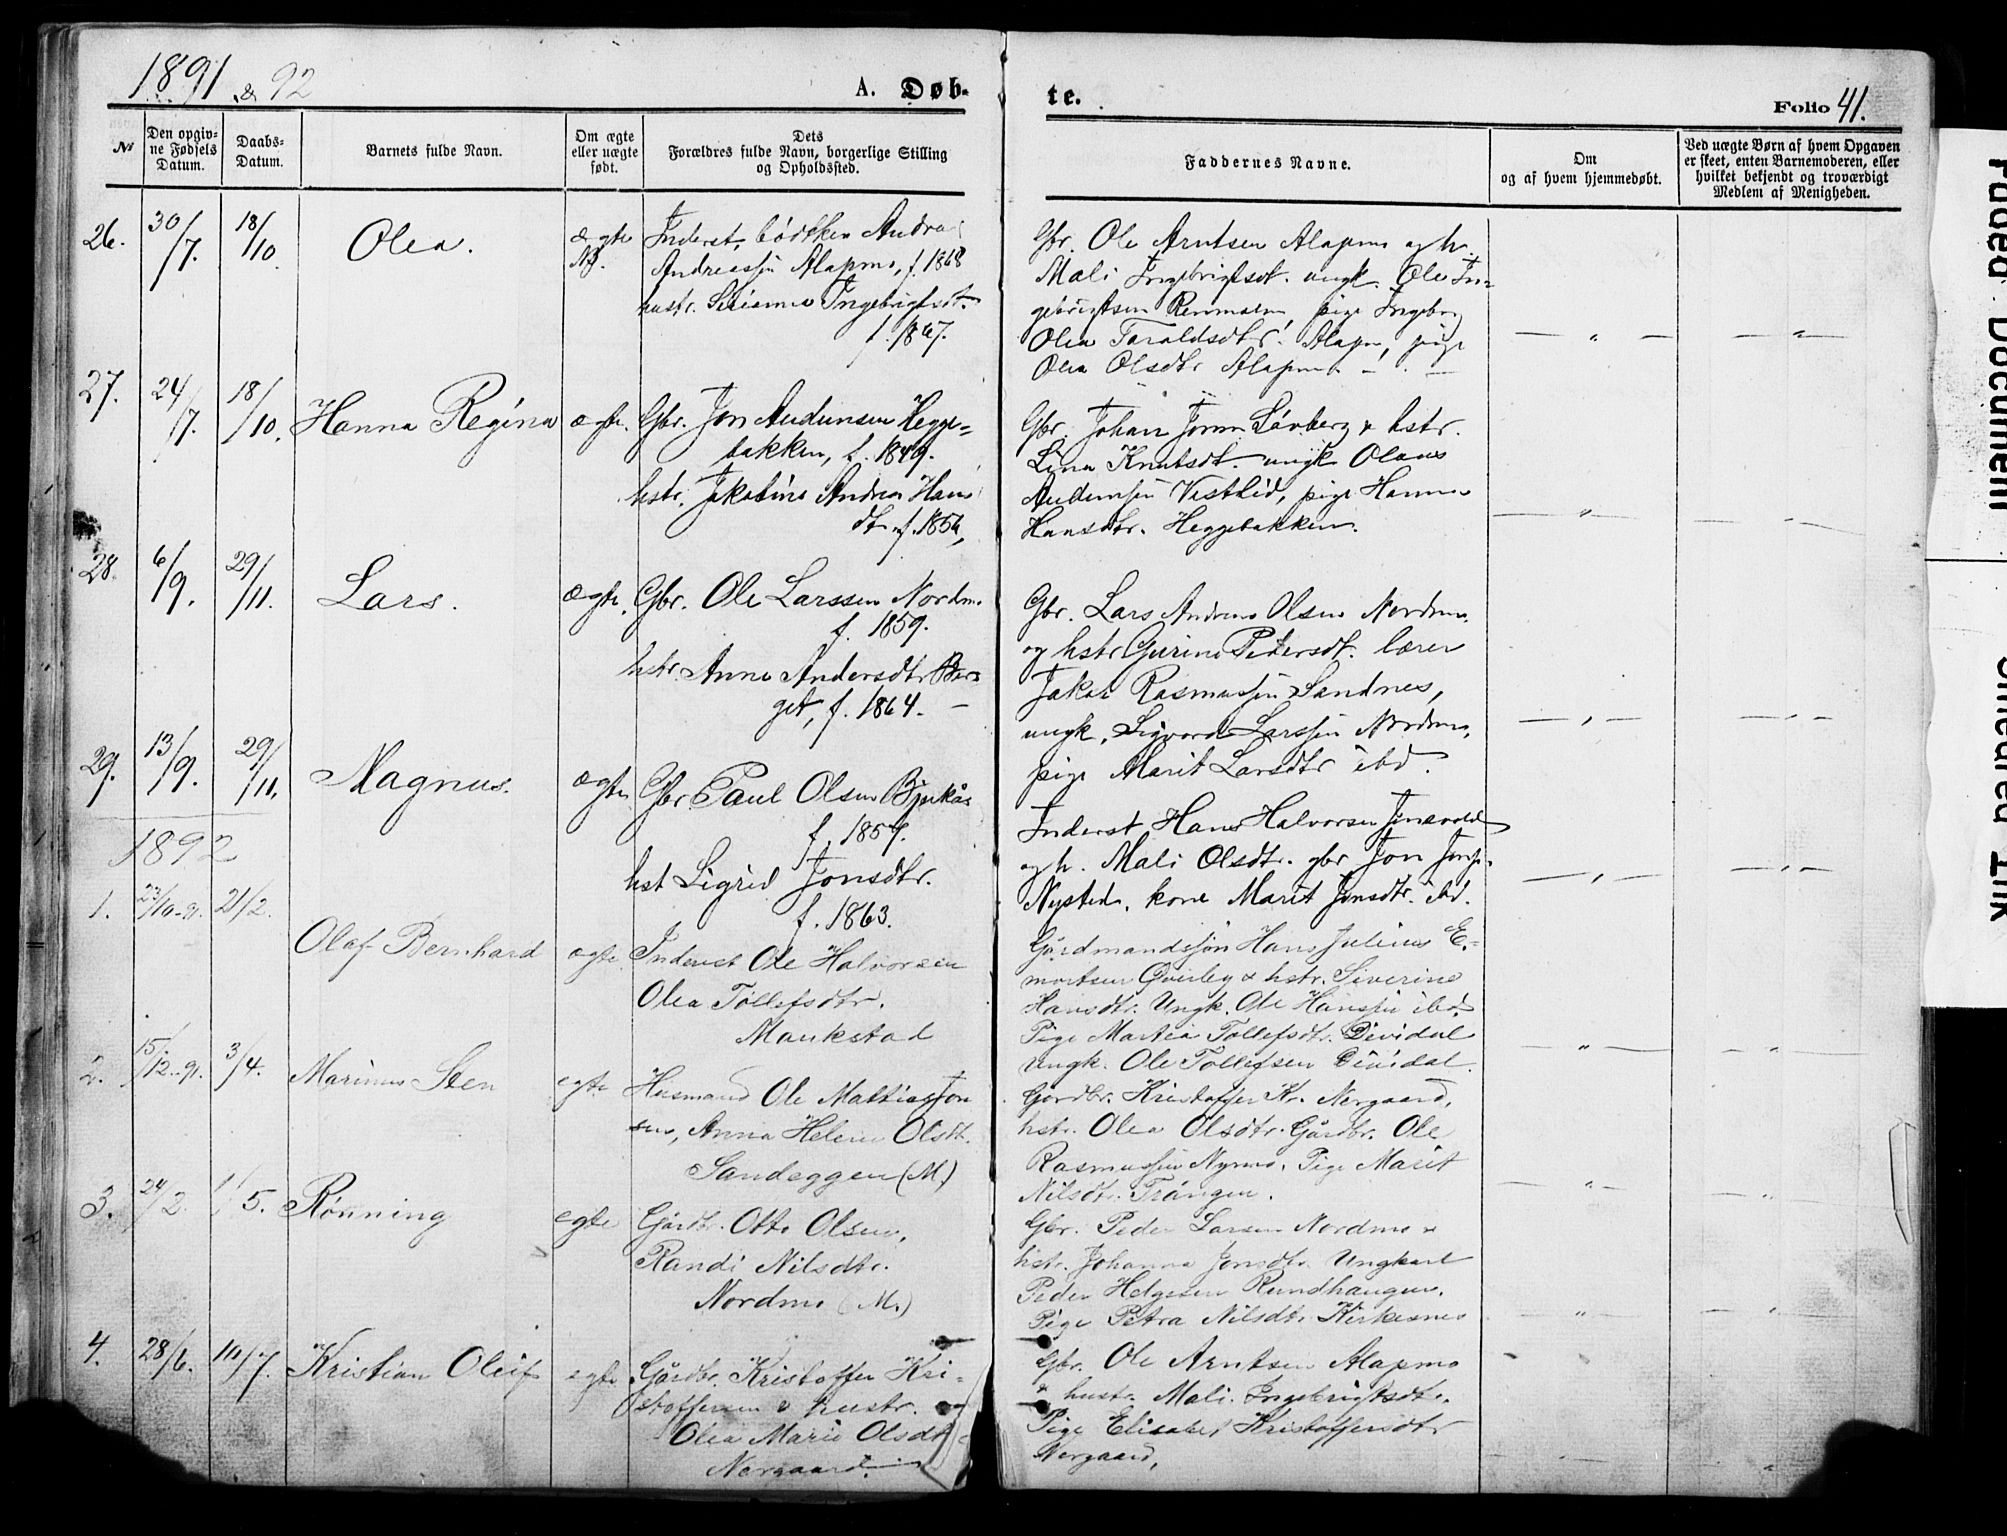 1891 & 92
A. Døb-
te.
Folio 41.
№
Den opgiv-
ne Fødsels
Datum.
Daabs-
Datum.
Barnets fulde Navn.
Om ægte
eller uægte
født.
Dets
Forældres fulde Navn, borgerlige Stilling
og Opholdssted.
Faddernes Navne.
Om
og af hvem hjemmedøbt.
Ved uægte Børn af hvem Opgaven
er skeet, enten Barnemoderen, eller
hvilket bekjendt og troværdigt
Medlem af Menigheden.
26. 30/7. 18/10 Olea. ægte
Inderst, bødtker
Andreassen Alapmo, f. 1868
hustr. Ingebrigtsdt.
f. 1867.
Gbr. Ole Arntsen Alapmo og h.
Mali Ingebrigtsdt. ungk. Ole In-
gebrigtsen, pige Ingeborg
Olea Taraldsdtr. Alapm, pige
Olea Olsdtr Alapmo
27. 24/7. 18/10. Hanna Regina ægte.
Gbr. Jon Audunsen Hegge-
bakken, f. 1849.
hstr. Jakobine Andrea Hans
dtr. f. 1856,
Gbr. Johan Løvberg & hstr.
Lina Knutsdt. ungk Olaus
Audunsen Vestlid, pige Hanna
Hansdtr. Heggebakken.
28. 6/9. 29/11. Lars. ægte.
Gbr. Ole Larssen Nordmo
f. 1859.
hstr. Anne Andersdtr Ber-
get, f. 1864.
Gbr. Lars Andreas Olsen Nordmo
og hstr Gurine Pedersdt. lærer
Jakob Rasmussen Sandnes,
ungk. Sigvard Larssen Nordmo,
pige Marit Larsdtr ibd.
29. 13/9. 29/11. Magnus. ægte
Gbr Paul Olsen Bjerkås
f. 1857.
hst Sigrid Jonsdtr.
f. 1863.
Inderst Hans Halvorsen
og h. Mali Olsdtr. gbr Jon
Nysted, kone Marit Jonsdtr. ibd.
1892
1. 23/10-91. 21/2. Olaf Bernhard ægte
Inderst Ole Halvorsen
Olea Tollefsdtr.
Moukstad
Gårdmandssøn Hans Julius E.-
mortsen & hstr. Siverine
Hansdtr. Ungk. Ole Hanssen ibd.
Pige Martea Tollefsdtr. Dividal
Ungk. Ole Tollefsen Dividal.
2. 15/12-91. 3/4. Marinus Sten egte
Husmand Ole Mathias Jon
sen, Anna Helene Olsdt.
Sandeggen (M.)
Gårdbr. Kristoffer Kr. Nergaard,
hstr. Olea Olsdtr. Gårdbr. Ole
Rasmussen Nymo. Pige Marit
Nilsdtr. Trangen.
3. 24/2. 1/5. Rønning egte
Gårdbr. Otto Olsen,
Randi Nilsdtr.
Nordmo (M.)
Gbr. Peder Larsen Nordmo &
hstr. Johanna Jonsdtr. Ungkarl
Peder Helgesen Rundhaugen.
Pige Petra Nilsdtr. Kirkesnes
4. 28/6. 10/7. Kristian Oluf egte
Gårdbr. Kristoffer Kri-
stoffersen & hustr.
Olea Marie Olsdtr
Nergaard.
Gbr. Ole Arntsen Alapmo
& hustr. Mali Ingebrigtsdt.
Pige Elisabet Kristoffersdtr
Nergaard,
Faded Document
Smeared Ink